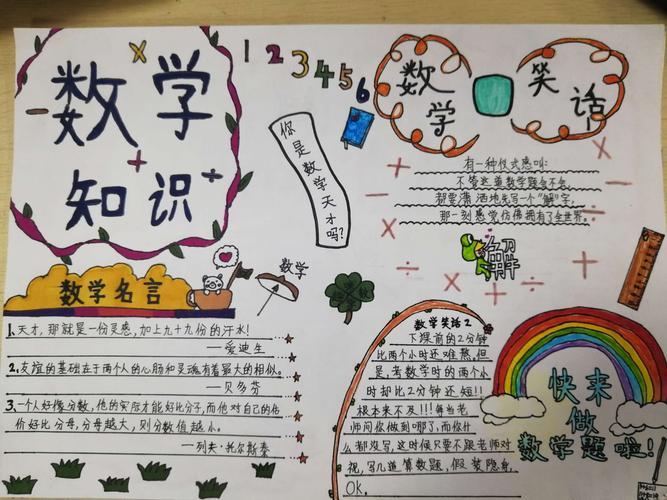 数学
知识
1 2 3 4 5 6
数学
笑话
你是数学天才吗?
有一种仪式感叫:
不管这道数学题会不会,
都要潇洒地先写一个"解"字,
那一刻感觉仿佛拥有了全世界。
解
数学名言
数学
1、天才,那就是一份灵感,加上九十九份的汗水!
—爱迪生
2、友谊的基础在于两个人的心肠和灵魂有着最大的相似。
—贝多芬
3、一个人好像分数,他的实际才能好比分子,而他对自己的估
价好比分母,分母越大,则分数值越小。
—列夫·托尔斯泰
数学笑话2
下课前的2分钟
比两个小时还难熬,但
是,考数学时的两个小
时却比2分钟还短!!
根本来不及!!!每当老
师问你做到哪了,而你什
么都没写,这时候只要不跟老师对
视,写几道算数题,假装隐身,
OK。
快来
做
数学题啦!